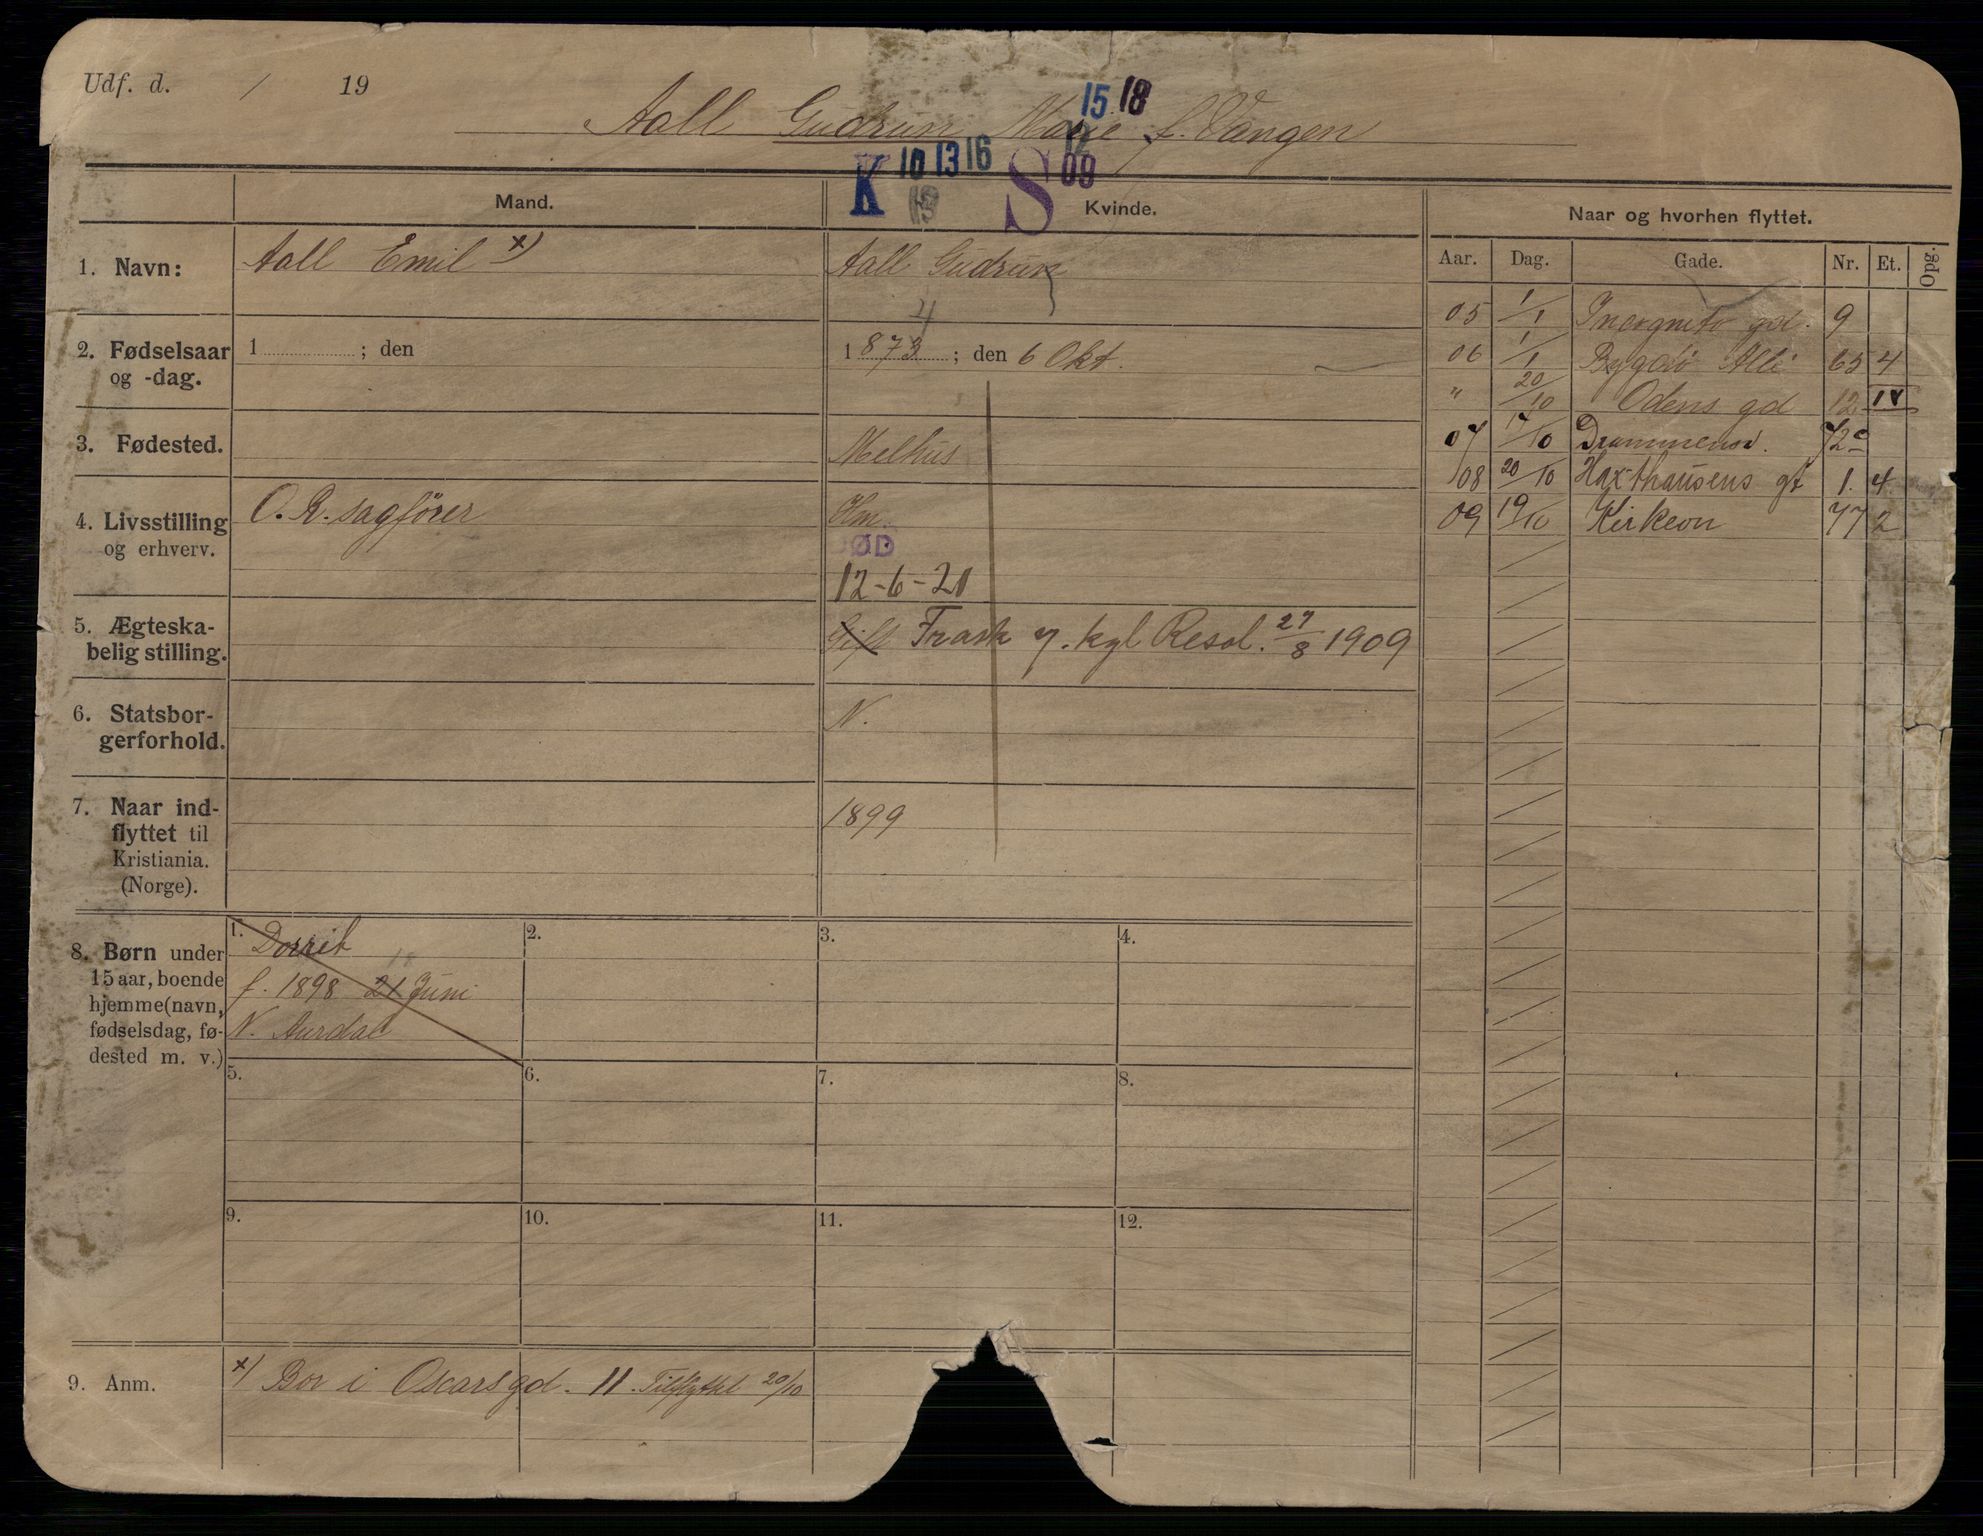 Udf. d. / 19
15 18
Aall Gudrun Marie f. Vangen
12
K 10 13 16 S 09
Mand.
Kvinde.
Naar og hvorhen flyttet.
Aar. Dag. Gade. Nr. Et. Opg.
1. Navn:
Aall Emil x)
Aall Gudrun
2. Fødselsaar og -dag.
1 ; den
4
1 873 ; den 6 Okt.
3. Fødested.
Melhus
4. Livsstilling og erhverv.
O. R. sagfører
Hm.
DØD
12-6-21
5. Ægteskabelig stilling.
Gift Frask v. kgl Resol. 27/8 1909
6. Statsborgerforhold.
N.
7. Naar indflyttet til Kristiania. (Norge).
1899
05 1/1 Incognito gd. 9
06 1/1 Bygdø Allé 65 4
" 20/10 Odens gd 12 IV
07 17/10 Drammensv. 72c
08 20/10 Haxthausens gt 1. 4
09 19/10 Kirkevn 77 2
8. Børn under 15 aar, boende hjemme (navn, fødselsdag, fødested m. v.)
1. Dorrit
18
f. 1898 21 Juni
N. Aurdal
2.
3.
4.
5.
6.
7.
8.
9.
10.
11.
12.
9. Anm.
x) Bor i Oscarsgd. 11. Tilflyttet 20/10